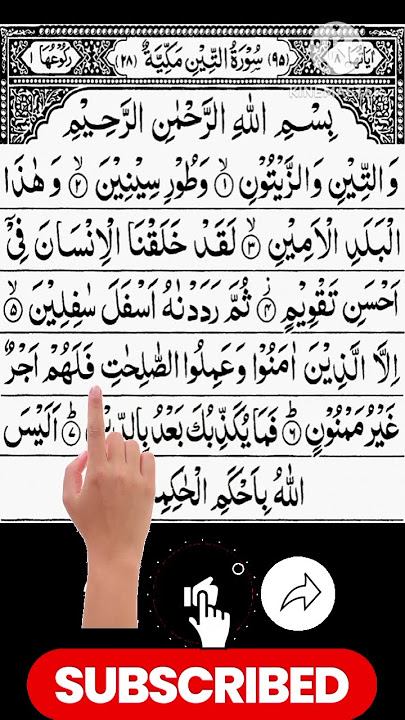 اٰيَاتُهَا ٨ (٩٥) سُوْرَةُ التِّيْنِ مَكِّيَّةٌ (٢٨) رُكُوْعُهَا ١
بِسْمِ اللّٰهِ الرَّحْمٰنِ الرَّحِيْمِ
وَالتِّيْنِ وَالزَّيْتُوْنِ ۙ﴿١﴾ وَطُوْرِ سِيْنِيْنَ ۙ﴿٢﴾ وَهٰذَا
الْبَلَدِ الْاَمِيْنِ ۙ﴿٣﴾ لَقَدْ خَلَقْنَا الْاِنْسَانَ فِيْٓ
اَحْسَنِ تَقْوِيْمٍ ۫﴿٤﴾ ثُمَّ رَدَدْنٰهُ اَسْفَلَ سٰفِلِيْنَ ۙ﴿٥﴾
اِلَّا الَّذِيْنَ اٰمَنُوْا وَعَمِلُوا الصّٰلِحٰتِ فَلَهُمْ اَجْرٌ
غَيْرُ مَمْنُوْنٍ ؕ﴿٦﴾ فَمَا يُكَذِّبُكَ بَعْدُ ؕ﴿٧﴾ اَلَيْسَ
اللّٰهُ بِاَحْكَمِ
SUBSCRIBED